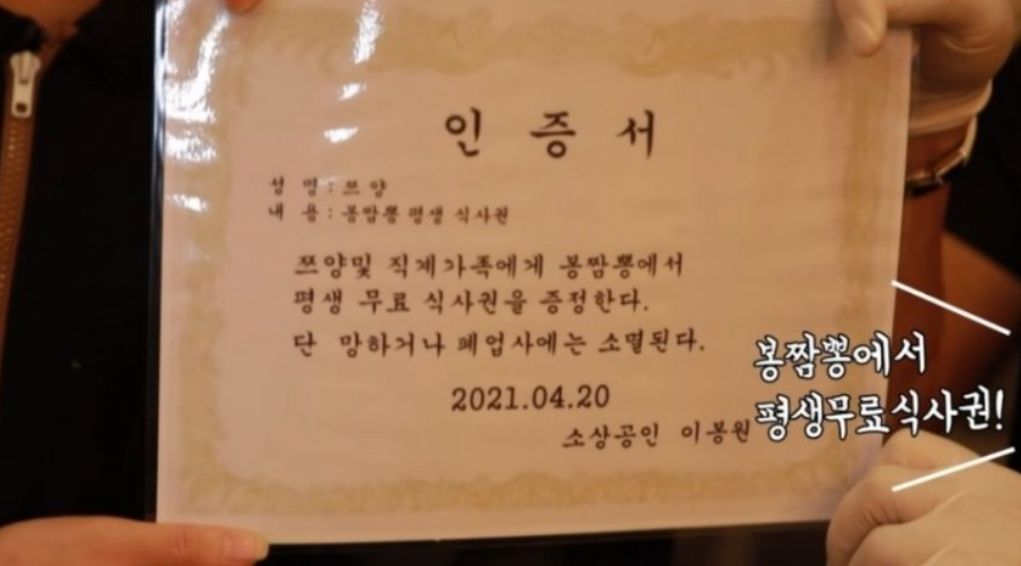 인 증 서
성 명 : 쯔 양
내 용 : 봉짬뽕 평생 식사권
쯔양및 직계가족에게 봉짬뽕에서
평생 무료 식사권을 증정한다.
단 망하거나 폐업사에는 소멸된다.
2021.04.20
소상공인 이봉원
봉짬뽕에서
평생무료식사권!